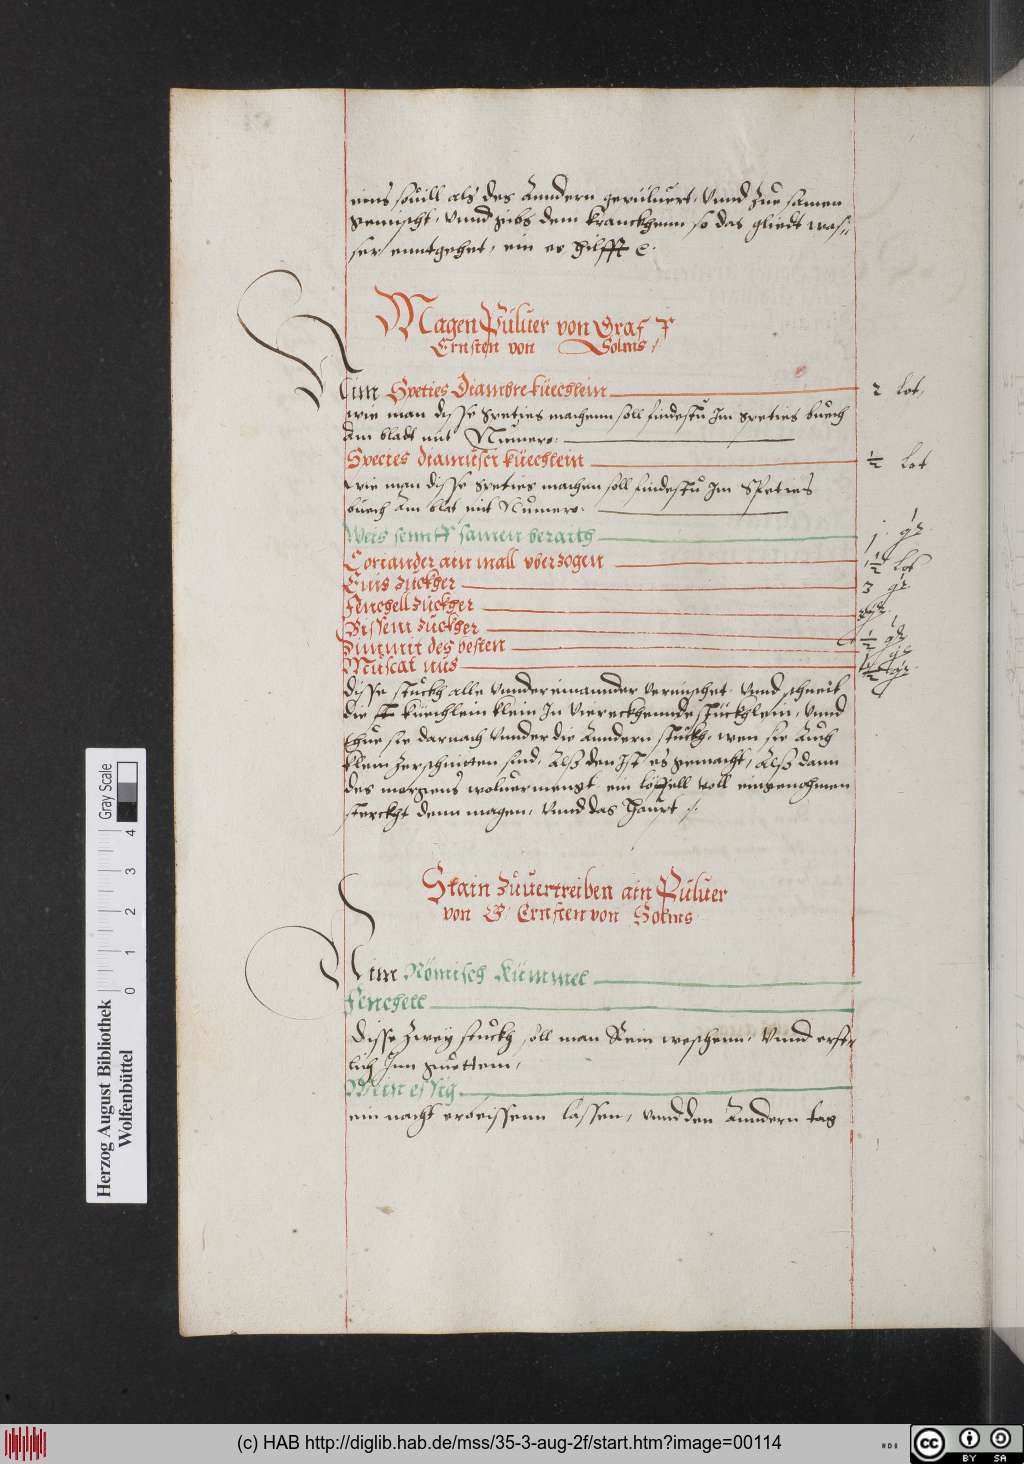 eins souill als des Anndern gepuluert, Vnnd Zue samen
gemischt, Vnnd gibs dem kranckhenn so das gliedt was=
ser enntgehet, ein es hilfft
Magen Puluer von Graf
Ernsten von Solms
Nim Speties Diambre küechlein 2 lot
wie man disse speties machenn soll findestu Im speties buech
Am bladt mit Numero:
Species diamuscr küechlein ½ lot
wie man disse speties machen soll findestu Im Speties
buech Am blat mit Numero:
Weis sennff samen beraith
Coriander ain mall vberzogen 1½ lot
Enis zuckher 3
Fenchell zuckher
Bissem zuckher
Zimmit des besten ½
Muscat nus
disse stuckh alle vnndereinannder vermischet, vnnd schneit
die küechlein klein In Viereckhennde stückhlein, Vnnd
thue sie darnach Vnnder die Anndern stuckh, wen sie Auch
klein zerschnitten sind, Alß den Ist es gemacht, Alß dann
des morgens woluermengt ein löffell voll eingenohmen
sterckht denn magen, Vnnd das haupt
Stain zuuertreiben ain Puluer
von G Ernsten von Solms
Nim Römisch Kümmel
Fenchell
disse zwey stuckh soll man Rein weschenn, Vnnd erst=
lich Inn guettem,
Wein essig
ein nacht erbeissenn lassen, vnnd den Anndern tag
Gray Scale
0 1 2 3 4
Herzog August Bibliothek
Wolfenbüttel
(c) HAB http://diglib.hab.de/mss/35-3-aug-2f/start.htm?image=00114
cc BY SA